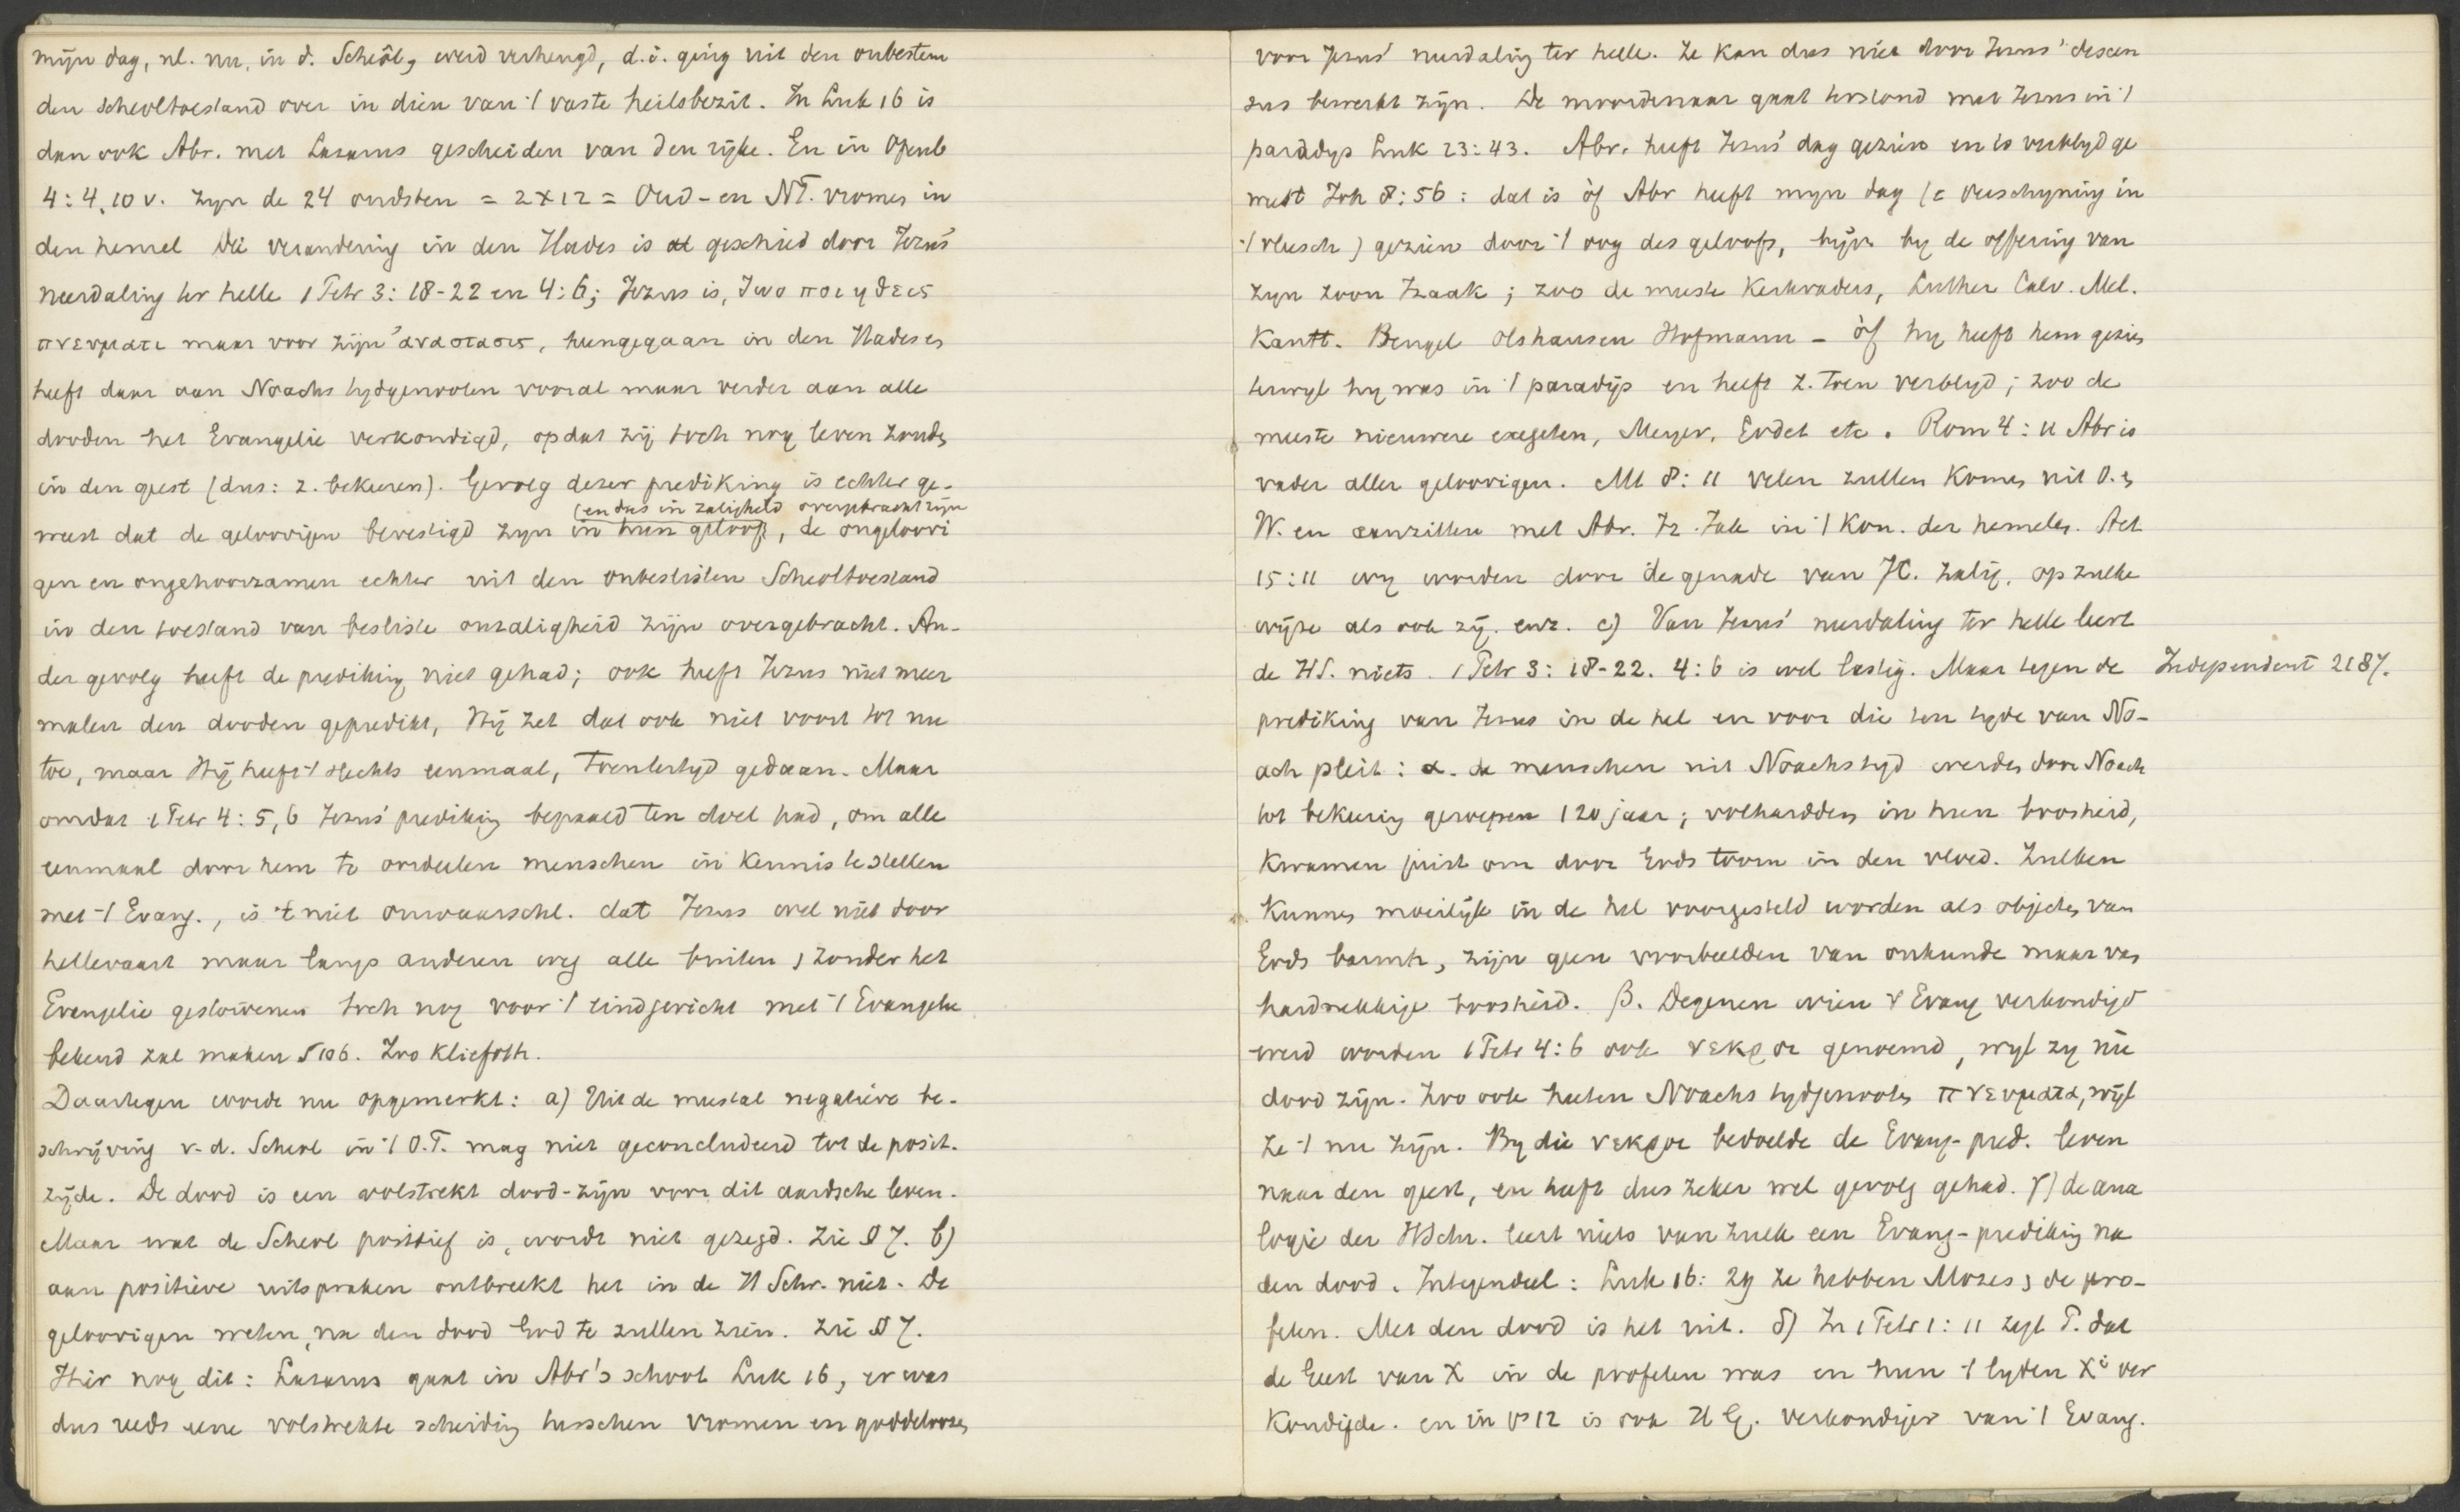 mijn dag, nl. nu, in d. Scheôl, werd verheugd, d.i. ging uit den onbestem
den scheoltoestand over in dien van 't vaste heilsbezit. In Luk 16 is
dan ook Abr. met Lazarus gescheiden van den rijke. En in Openb
4:4,10 v. zyn de 24 oudsten = 2x12 = Oud- en NT. vromen in
den hemel Die verandering in den Hades is geschied door Jezus'
neerdaling ter helle 1 Petr 3: 18-22 en 4:6; Jezus is, ζωοποιηθεις
πνευματι maar voor zijn ἀναστασις, heengegaan in den Hades en
heeft daar aan Noachs tydgenooten vooral maar verder aan alle
dooden het Evangelie verkondigd, opdat zij toch nog leven zouden
in den geest (dus: z. bekeeren). Gevolg dezer prediking is echter ge-
(en dus in zaligheid overgebracht zijn
weest dat de geloovigen bevestigd zyn in hun geloof, de ongeloovi
gen en ongehoorzamen echter uit den onbeslisten Scheoltoestand
in den toestand van besliste onzaligheid zijn overgebracht. An-
der gevolg heeft de prediking niet gehad; ook heeft Jezus niet meer
malen den dooden gepredikt, Hij zet dat ook niet voort tot nu
toe, maar Hij heeft 't slechts eenmaal, toentertyd gedaan. Maar
omdat 1 Petr 4:5,6 Jezus' prediking bepaald ten doel had, om alle
eenmaal door hem te oordeelen menschen in kennis te stellen
met 't Evang., is 't niet onwaarschl. dat Jezus wel niet door
hellevaart maar langs anderen weg alle buiten, zonder het
Evangelie gestorvenen toch nog voor 't eindgericht met 't Evangelie
bekend zal maken § 106. Zoo Kliefoth.
Daartegen worde nu opgemerkt: a) Uit de meestal negatieve be-
schrijving v. d. Scheol in 't O.T. mag niet geconcludeerd tot de posit.
zijde. De dood is een volstrekt dood-zijn voor dit aardsche leven.
Maar wat de Scheol positief is, wordt niet gezegd. Zie § 7. b)
aan positieve uitspraken ontbreekt het in de H Schr. niet. De
geloovigen weten, na den dood God te zullen zien. Zie § 7.
Hier nog dit: Lazarus gaat in Abr's schoot Luk 16, er was
dus reeds eene volstrekte scheiding tusschen vromen en goddeloozen
voor Jezus' neerdaling ter helle. Ze kan dus niet door Jezus' descen
sus bewerkt zijn. De moordenaar gaat terstond met Jezus in 't
paradys Luk 23:43. Abr. heeft Jezus' dag gezien en is verblyd ge
weest Joh 8:56: dat is òf Abr heeft myn dag (= verschyning in
't vleesch) gezien door 't oog des geloofs, bijv. by de offering van
zyn zoon Izaak; zoo de meeste Kerkvaders, Luther Calv. Mel.
Kantt. Bengel Olshausen Hofmann - òf hy heeft hem gezien
terwyl hy was in 't paradijs en heeft z. toen verblyd; zoo de
meeste nieuwere exegeten, Meyer, Godet etc. Rom 4:11 Abr is
vader aller geloovigen. Mt 8:11 velen zullen komen uit O. en
W. en aanzitten met Abr. Iz. Jak in 't Kon. der hemelen. Act
15:11 wy worden door de genade van JC. zalig, op zulke
wijze als ook zij. enz. c) Van Jezus' neerdaling ter helle leert
de HS. niets. 1 Petr 3:18-22. 4:6 is wel lastig. Maar tegen de
Independent 2187.
prediking van Jezus in de hel en voor die ten tyde van No-
ach pleit: α. de menschen uit Noachs tyd werden door Noach
tot bekeering geroepen 120 jaar; volhardden in hun boosheid,
kwamen juist om door Gods toorn in den vloed. Zulken
kunnen moeilijk in de hel voorgesteld worden als objecten van
Gods barmh., zijn geen voorbeelden van onkunde maar van
hardnekkige boosheid. β. Degenen wien 't Evang verkondigd
werd worden 1 Petr 4:6 ook νεκροι genoemd, wyl zy nu
dood zijn. Zoo ook heeten Noachs tydgenooten πνευματα, wijl
ze 't nu zijn. By die νεκροι bedoelde de Evang-pred. leven
naar den geest, en heeft dus zeker wel gevolg gehad. γ) de ana
logie der HSchr. leert niets van zulk een Evang-prediking na
den dood. Integendeel: Luk 16: 29 ze hebben Mozes, de pro-
feten. Met den dood is het uit. δ) In 1 Petr 1: 11 zegt P. dat
de Geest van X in de profeten was en hun 't lyden Xi ver
kondigde. en in vs 12 is ook HG. verkondiger van 't Evang.